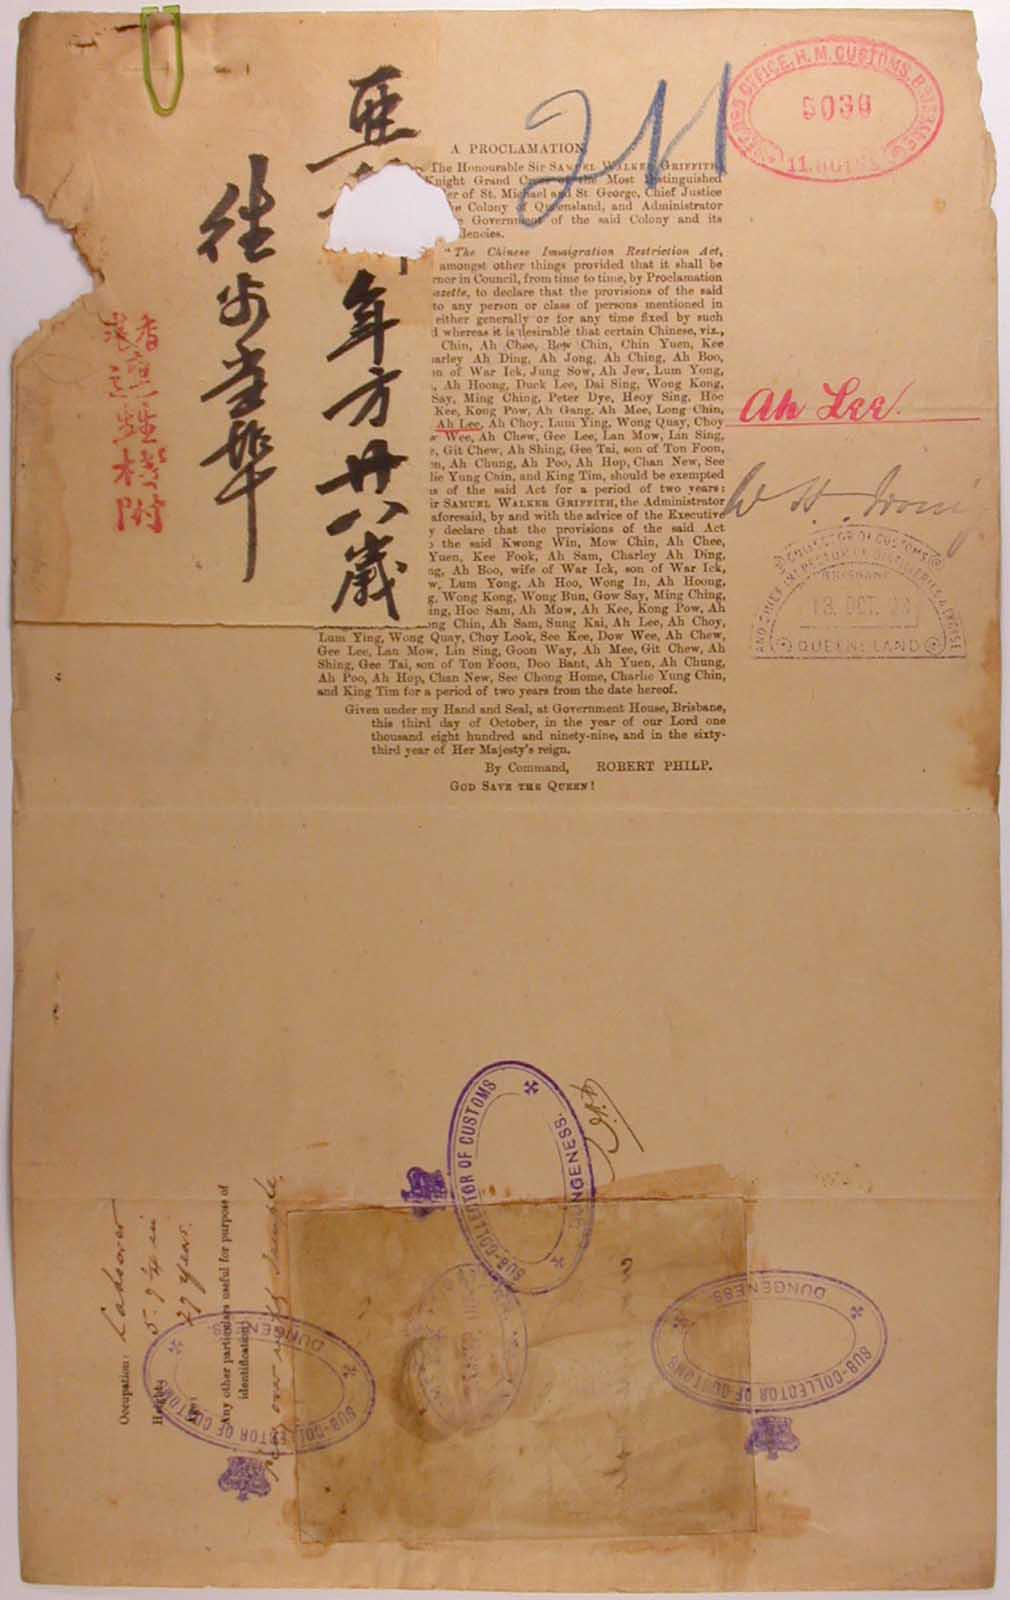 亞
年方廿八歲
往安南埠
211
RECORDS OFFICE, H. M. CUSTOMS, BRISBANE
5039
A PROCLAMATION
The Honourable Sir SAMUEL WALKER GRIFFITH,
Knight Grand Cross of the Most Distinguished
er of St. Michael and St. George, Chief Justice
he Colony of Queensland, and Administrator
e Government of the said Colony and its
dencies.
"The Chinese Immigration Restriction Act,
amongst other things provided that it shall be
rnor in Council, from time to time, by Proclamation
azette, to declare that the provisions of the said
to any person or class of persons mentioned in
either generally or for any time fixed by such
d whereas it is desirable that certain Chinese, viz.,
Chin, Ah Chee, Bow Chin, Chin Yuen, Kee
harley Ah Ding, Ah Jong, Ah Ching, Ah Boo,
on of War Ick, Jung Sow, Ah Jew, Lum Yong,
, Ah Hoong, Duck Lee, Dai Sing, Wong Kong,
Say, Ming Ching, Peter Dye, Heoy Sing, Hoc
Kee, Kong Pow, Ah Gang, Ah Mee, Long Chin,
Ah Lee, Ah Choy, Lum Ying, Wong Quay, Choy
w Wee, Ah Chew, Gee Lee, Lan Mow, Lin Sing,
e, Git Chew, Ah Shing, Gee Tai, son of Ton Foon,
en, Ah Chung, Ah Poo, Ah Hop, Chan New, See
lie Yung Chin, and King Tim, should be exempted
ns of the said Act for a period of two years:
ir SAMUEL WALKER GRIFFITH, the Administrator
aforesaid, by and with the advice of the Executive
y declare that the provisions of the said Act
o the said Kwong Win, Mow Chin, Ah Chee,
Yuen, Kee Fook, Ah Sam, Charley Ah Ding,
ng, Ah Boo, wife of War Ick, son of War Ick,
w, Lum Yong, Ah Hoo, Wong In, Ah Hoong,
g, Wong Kong, Wong Bun, Gow Say, Ming Ching,
ing, Hoc Sam, Ah Mow, Ah Kee, Kong Pow, Ah
ong Chin, Ah Sam, Sung Kai, Ah Lee, Ah Choy,
Lum Ying, Wong Quay, Choy Look, See Kee, Dow Wee, Ah Chew,
Gee Lee, Lan Mow, Lin Sing, Goon Way, Ah Mee, Git Chew, Ah
Shing, Gee Tai, son of Ton Foon, Doo Bant, Ah Yuen, Ah Chung,
Ah Poo, Ah Hop, Chan New, See Chong Home, Charlie Yung Chin,
and King Tim for a period of two years from the date hereof.
Given under my Hand and Seal, at Government House, Brisbane,
this third day of October, in the year of our Lord one
thousand eight hundred and ninety-nine, and in the sixty-
third year of Her Majesty's reign.
By Command, ROBERT PHILP.
GOD SAVE THE QUEEN!
Ah Lee.
W. H. Irving
COLLECTOR OF CUSTOMS
AND CHIEF INSPECTOR OF DISTILLERIES & EXCISE
BRISBANE
13. OCT.
QUEENSLAND
SUB-COLLECTOR OF CUSTOMS
DUNGENESS.
Occupation: Labourer
Height:
Age: 27 years.
Any other particulars useful for purpose of
identification:
SUB-COLLECTOR OF CUSTOMS
DUNGENESS.
SUB-COLLECTOR OF CUSTOMS
DUNGENESS.